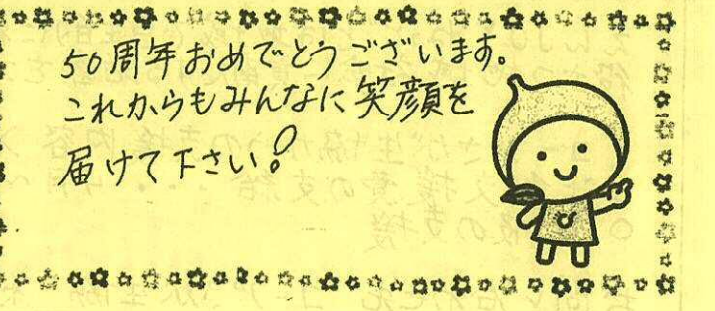 50周年おめでとうございます。
これからもみんなに笑顔を
届けて下さい!